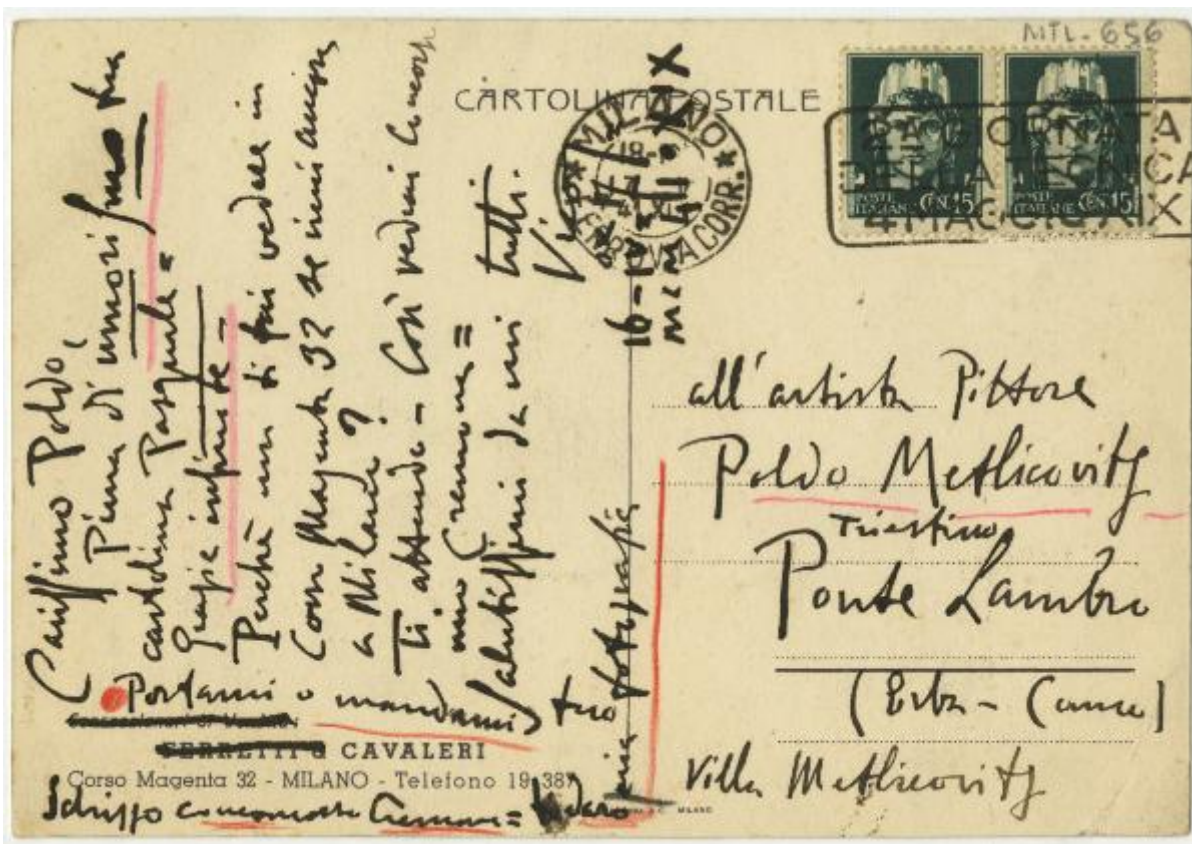 MTL-656
CARTOLINA POSTALE
MILANO
FERROVIA CORR.
2A GIORNATA
DELLA TECNICA
4 MAGGIO XIX
POSTE ITALIANE CEN. 15
POSTE ITALIANE CEN. 15
Poldo,
Piena di umori
cartolina Pasquale =
Grazie infinite -
Perchè non ti fai vedere in
Corso Magenta 32 se vieni ancora
a Milano?
Ti attendo - Così vedrai
Cremona =
da noi tutti.
Portami o mandami
tua fotografia
FERRETTI & CAVALERI
Corso Magenta 32 - MILANO - Telefono 19-387
Schizzo Cremona =
all'artista Pittore
Poldo Metlicovitz
Triestino
Ponte Lambro
(Erba -
Villa Metlicovitz
MILANO